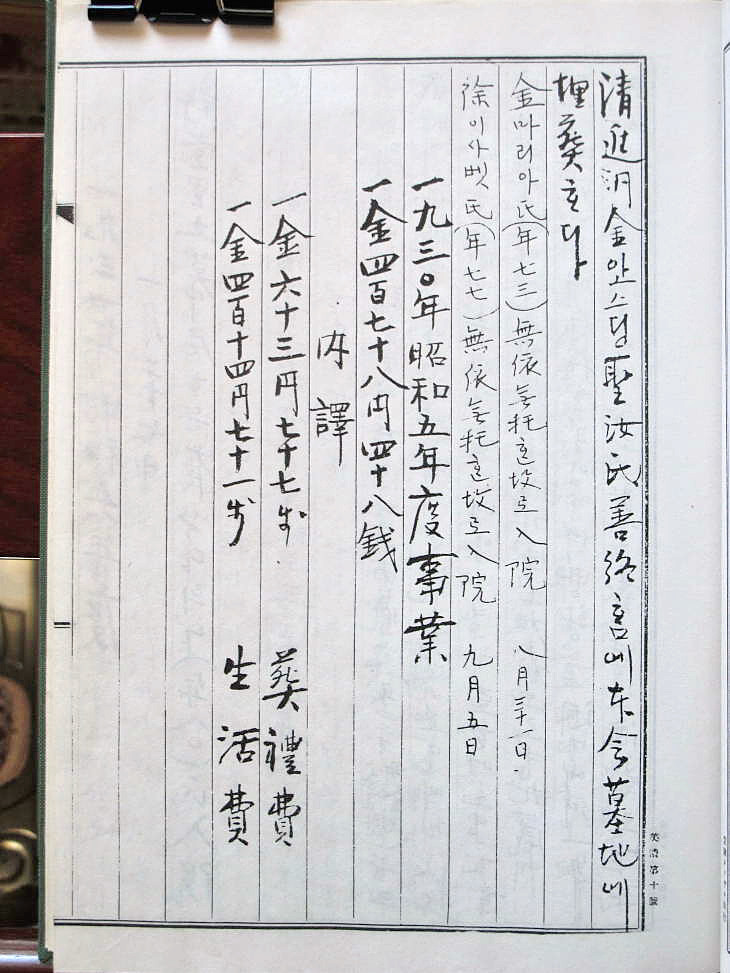 清進洞金안스딩聖汝氏善終홈애本會墓地애
埋葬ᄒᆞ다
金마리아氏(年七三)無依無托ᄒᆞᄆᆡ로入院 八月三十一日
徐이사벳氏(年七七)無依無托ᄒᆞᄆᆡ로入院 九月五日
一九三〇年昭和五年度事業
一金四百七十八円四十八錢
内譯
一金六十三円七十七錢 葬禮費
一金四百十四円七十一錢 生活費